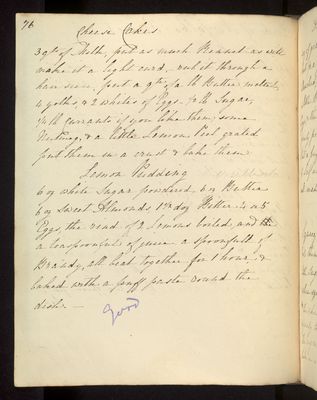 76
Cheese Cakes
3 qts of Milk, put as much Rennet as will
make it a light curd, rub it through a
hair sieve, put a qr of a lb Butter melted,
4 yolks, & 2 whites of Eggs, lb Sugar,
lb currants if you like them, some
Nutmeg, & a little Lemon Peel grated
put them in a crust & bake them
Lemon Pudding
6 oz white Sugar powdered, 6 oz Butter
6 oz Sweet Almonds, Do Bitter, 4
Eggs, the rind of 2 Lemons boiled, and
a teaspoonful of juice a spoonfull of
Brandy, all beat together for 1 hour, &
baked with a puff paste round the
dish. —
Good